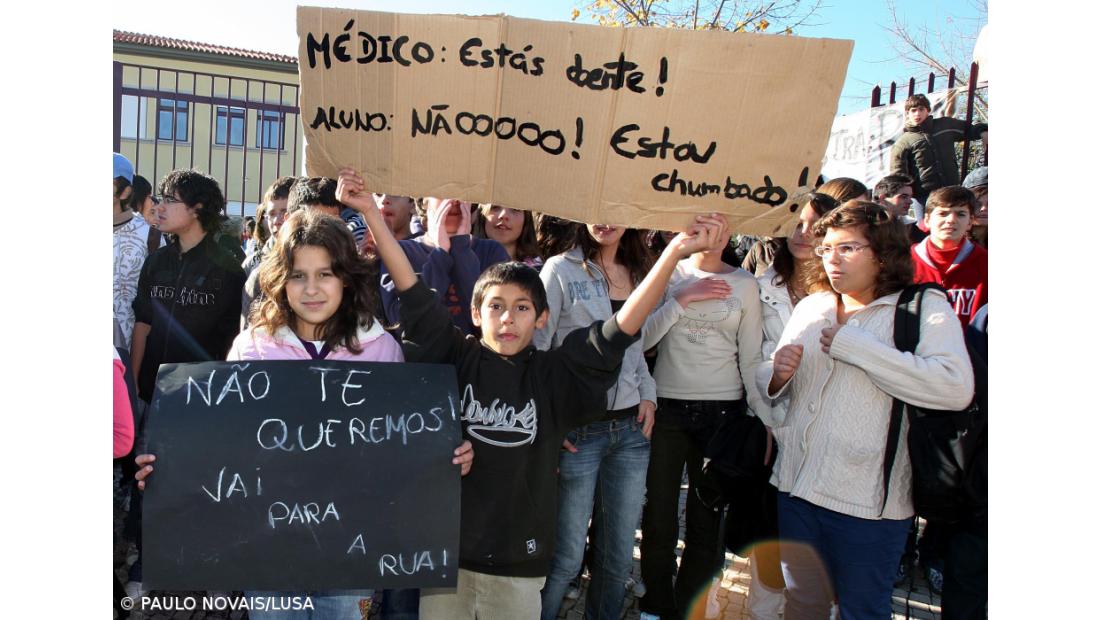 MÉDICO: Estás doente!
ALUNO: NÃOOOOO! Estou
chumbado!
TRA:P
NÃO TE
QUEREMOS!
VAI
PARA
A
RUA!
© PAULO NOVAIS/LUSA